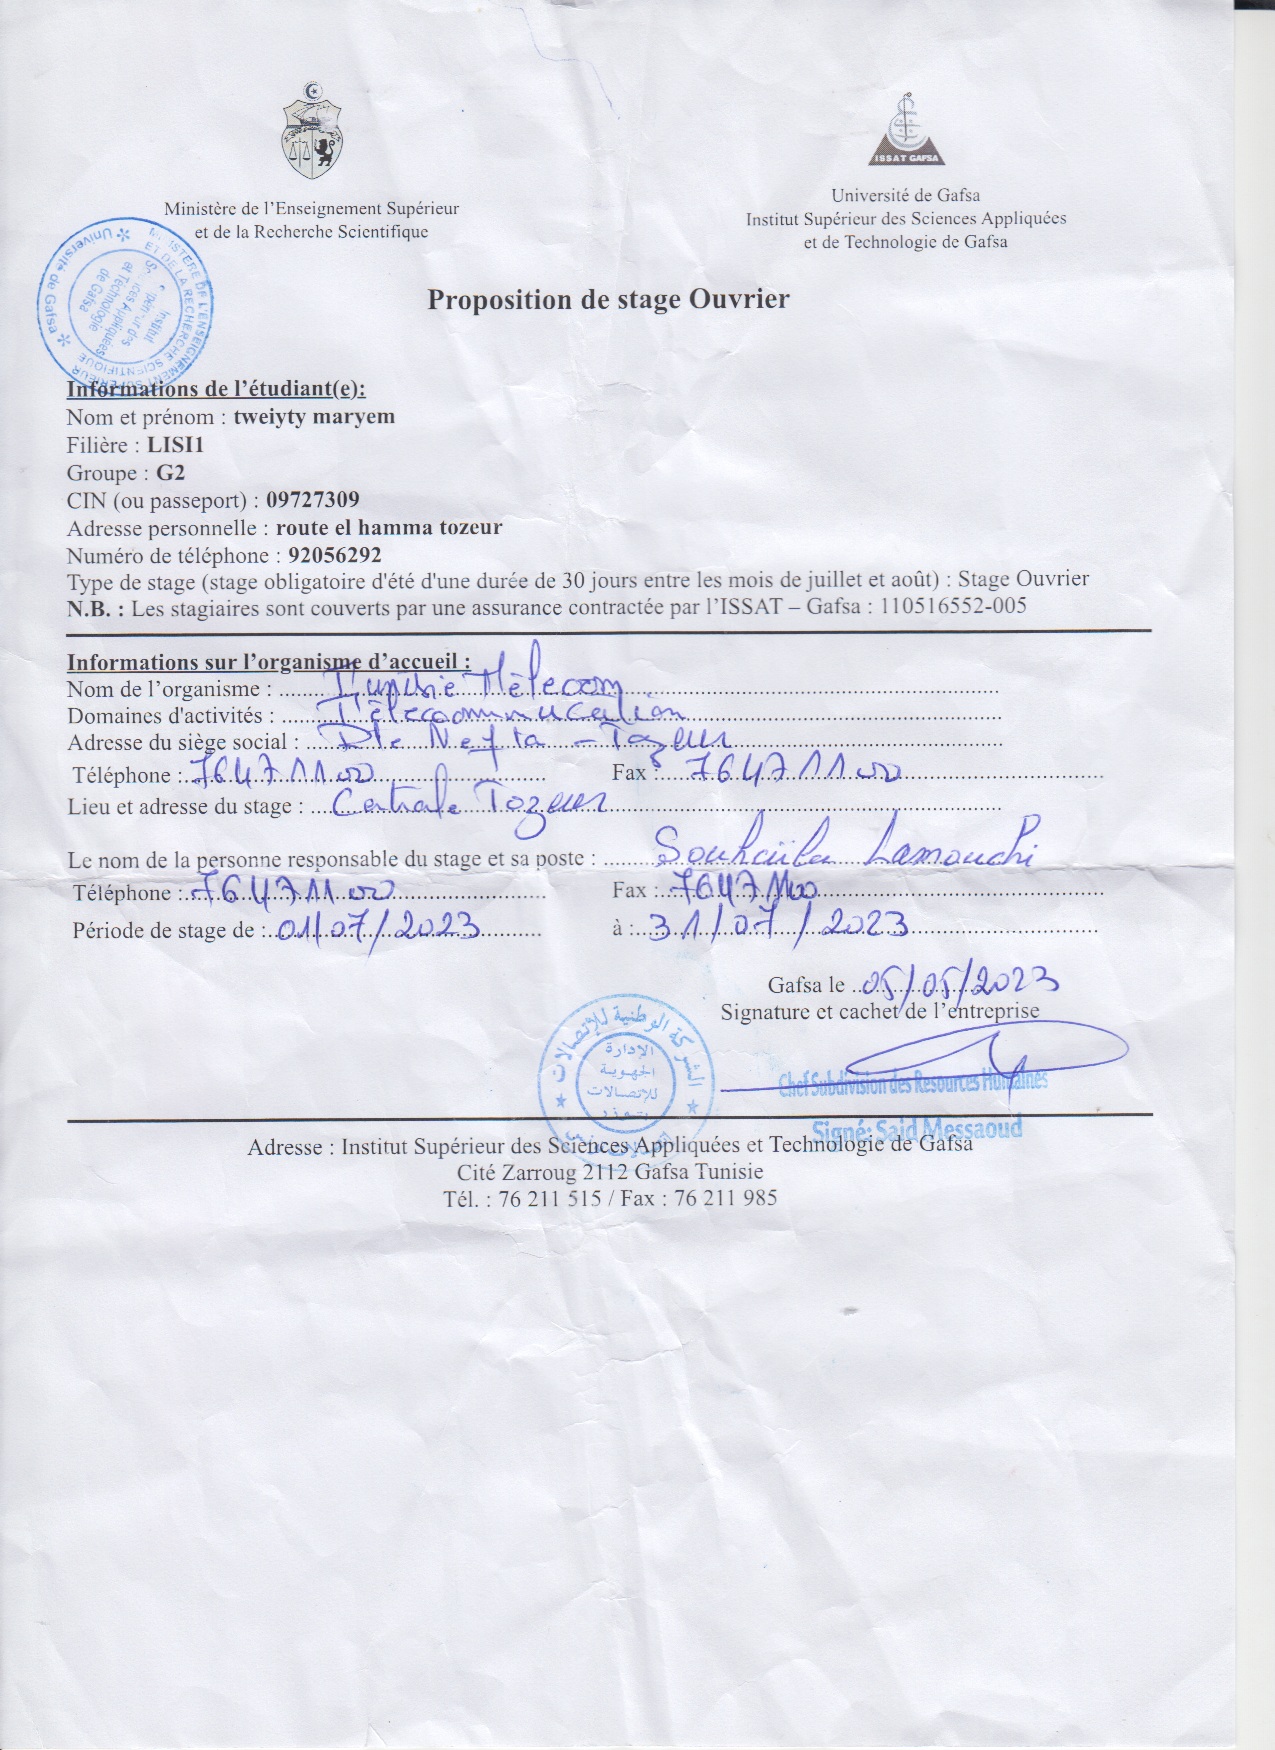 ISSAT GAFSA
Ministère de l'Enseignement Supérieur
et de la Recherche Scientifique
Université de Gafsa
Institut Supérieur des Sciences Appliquées
et de Technologie de Gafsa
MINISTERE DE L'ENSEIGNEMENT SUPERIEUR
ET DE LA RECHERCHE SCIENTIFIQUE
Université de Gafsa
Institut
Supérieur des
Sciences Appliquées
et Technologie
de Gafsa
Proposition de stage Ouvrier
Informations de l'étudiant(e):
Nom et prénom : tweiyty maryem
Filière : LISI1
Groupe : G2
CIN (ou passeport) : 09727309
Adresse personnelle : route el hamma tozeur
Numéro de téléphone : 92056292
Type de stage (stage obligatoire d'été d'une durée de 30 jours entre les mois de juillet et août) : Stage Ouvrier
N.B. : Les stagiaires sont couverts par une assurance contractée par l'ISSAT – Gafsa : 110516552-005
Informations sur l'organisme d'accueil :
Nom de l'organisme : Tunisie Télécom
Domaines d'activités : Télécommunication
Adresse du siège social : Rte Nefta - Tozeur
Téléphone : 76 47 11 00 Fax : 76 47 11 00
Lieu et adresse du stage : Centrale Tozeur
Le nom de la personne responsable du stage et sa poste : Souhaila Lamouchi
Téléphone : 76 47 11 00 Fax : 76 47 11 00
Période de stage de : 01/07/2023 à : 31/07/2023
Gafsa le 05/05/2023
Signature et cachet de l'entreprise
الشركة الوطنية للإتصالات
الإدارة
الجهوية
للإتصالات
بتوزر
Chef Subdivision des Resources Humaines
Signé: Said Messaoud
Adresse : Institut Supérieur des Sciences Appliquées et Technologie de Gafsa
Cité Zarroug 2112 Gafsa Tunisie
Tél. : 76 211 515 / Fax : 76 211 985